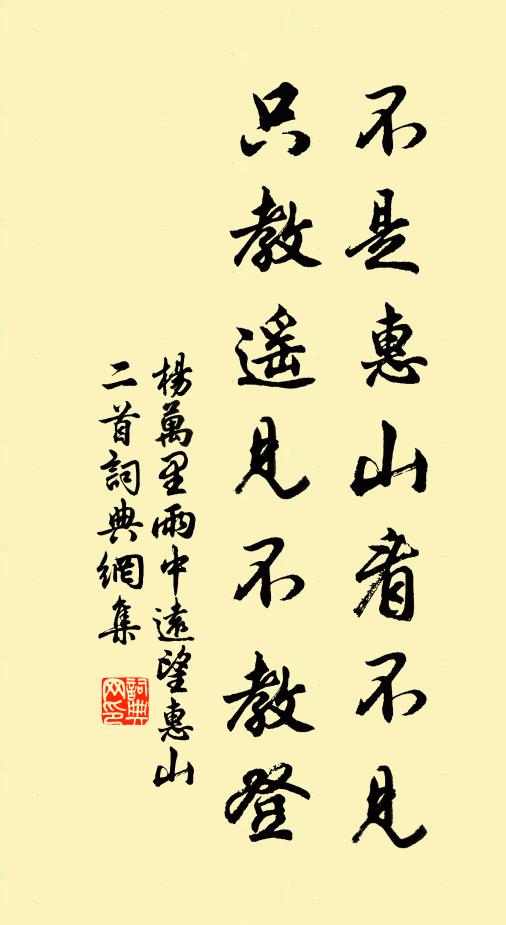 不是惠山看不見
只教遥見不教登
楊萬里雨中遠望惠山
二首詞典網集
詞典
网印